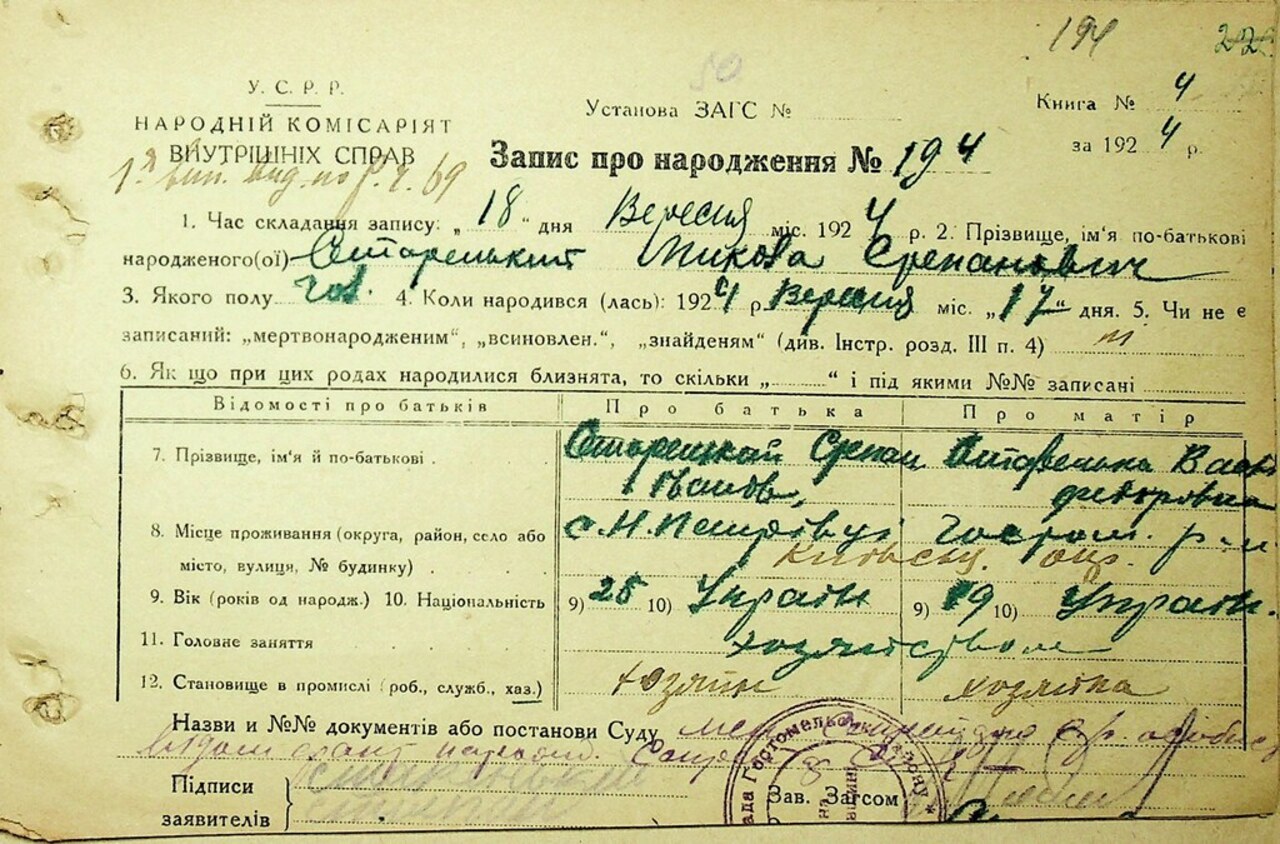 194 22
50
У. С. Р. Р.
НАРОДНІЙ КОМІСАРІЯТ
ВНУТРІШНІХ СПРАВ
Установа ЗАГС №
Книга № 4
за 1924 р.
Запис про народження № 194
1. Час складання запису: „18“ дня Вересня міс. 1924 р. 2. Прізвище, ім'я по-батькові
народженого(ої) Старецький Микола Степанович
3. Якого полу чол. 4. Коли народився (лась): 1924 р. Вересня міс. „17“ дня. 5. Чи не є
записаний: „мертвонародженим“, „всиновлен.“, „знайденям“ (див. Інстр. розд. III п. 4)
6. Як що при цих родах народилися близнята, то скільки „ “ і під якими №№ записані
Відомості про батьків Про батька Про матір
7. Прізвище, ім'я й по-батькові . Старецкий Степан
8. Місце проживання (округа, район, село або с. Н. Петрівці Гостом. р-н.
місто, вулиця, № будинку) . . Київськ. окр.
9. Вік (років од народж.) 10. Національність 9) 25 10) Україн 9) 19 10) Україн.
11. Головне заняття хозяйством
12. Становище в промислі (роб., служб., хаз.) хозяин хозяйка
Назви и №№ документів або постанови Суду
Підписи
заявителів
Зав. Загсом
Гостомельск району